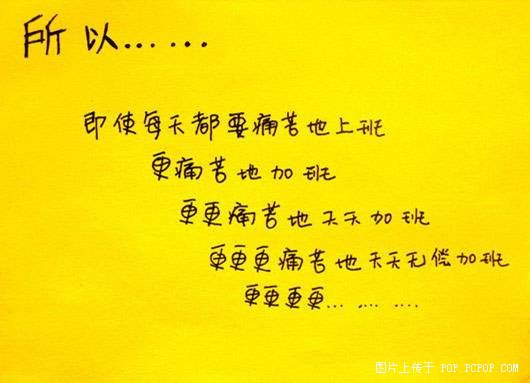 所以……
即使每天都要痛苦地上班
更痛苦地加班
更更痛苦地天天加班
更更更痛苦地天天无偿加班
更更更更… … …
图片上传于 POP.PCPOP.COM